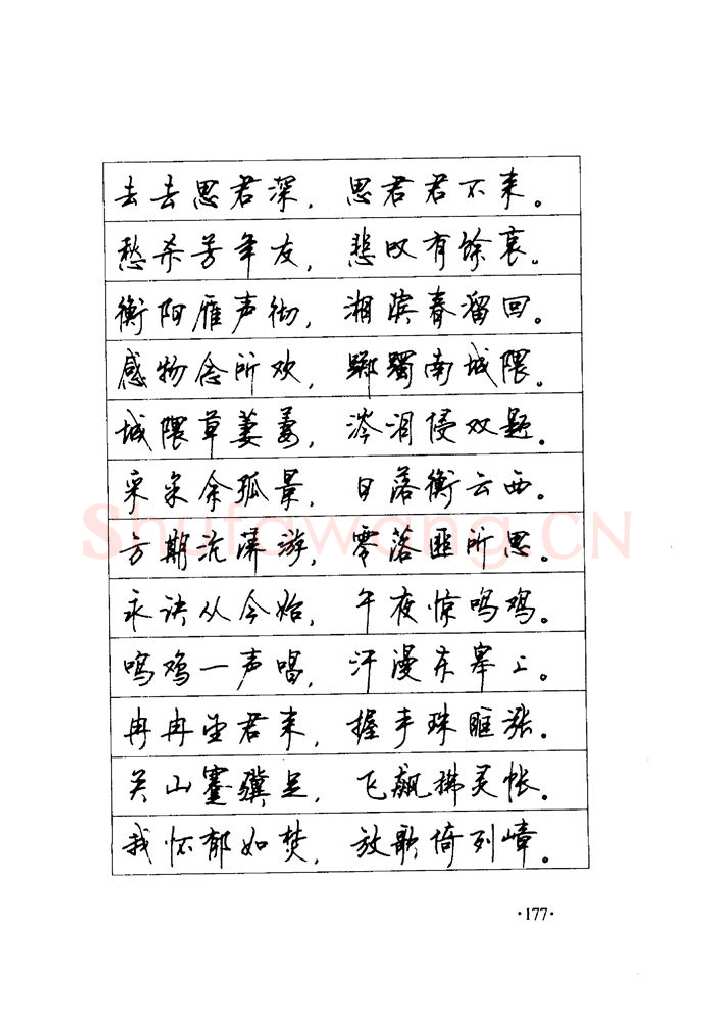 去去思君深，思君君不来。
愁杀芳年友，悲叹有馀哀。
衡阳雁声彻，湘滨春溜回。
感物念所欢，踯躅南城隈。
城隈草萋萋，涔泪侵双题。
采采余孤景，日落衡云西。
方期沆瀁游，零落匪所思。
永诀从今始，午夜惊鸣鸡。
鸣鸡一声唱，汗漫东皋上。
冉冉望君来，握手珠眶涨。
关山蹇骥足，飞飙拂灵帐。
我怀郁如焚，放歌倚列嶂。
Shufawang.CN
·177·